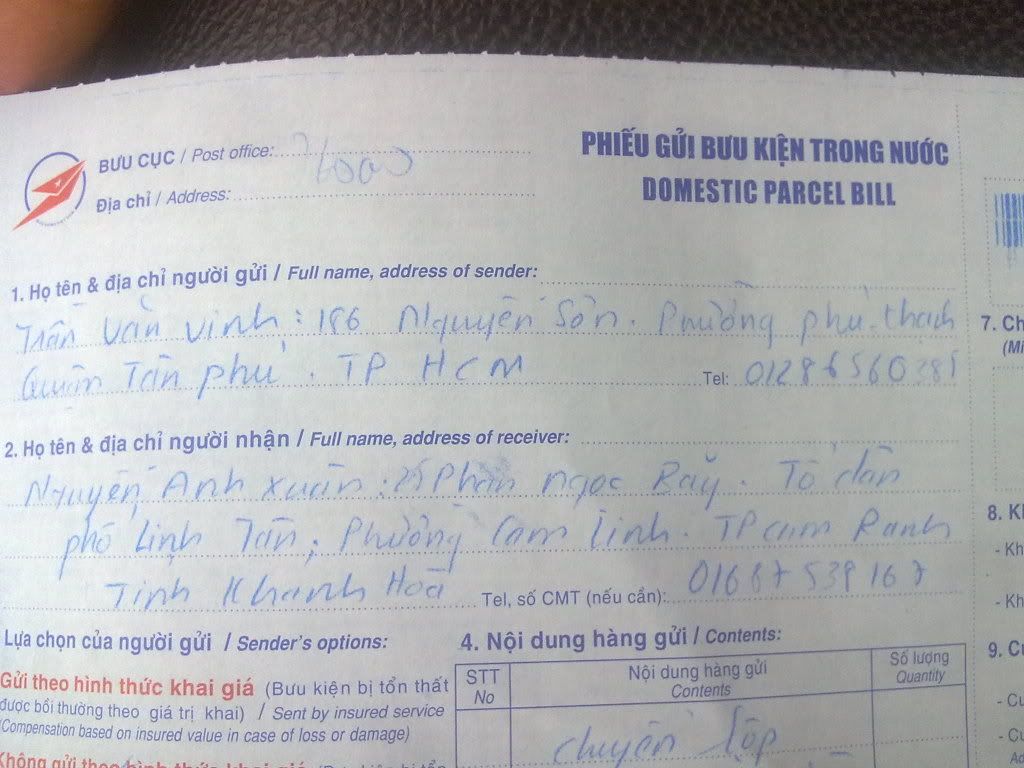 BƯU CỤC / Post office:
Địa chỉ / Address:
PHIẾU GỬI BƯU KIỆN TRONG NƯỚC
DOMESTIC PARCEL BILL
1. Họ tên & địa chỉ người gửi / Full name, address of sender:
Trần Văn Vinh : 186 Nguyễn Sơn. Phường phú thạch
Quân Tân phú. TP HCM Tel: 01286560281
2. Họ tên & địa chỉ người nhận / Full name, address of receiver:
Nguyễn Anh Xuân : Phan Ngọc Bảy. Tổ dân
phố Linh Tân, Phường Cam linh. TP cam Ranh
Tỉnh Khanh Hoà Tel, số CMT (nếu cần): 01687539167
Lựa chọn của người gửi / Sender's options:
4. Nội dung hàng gửi / Contents:
Gửi theo hình thức khai giá (Bưu kiện bị tổn thất
được bồi thường theo giá trị khai) / Sent by insured service
(Compensation based on insured value in case of loss or damage)
Không gửi theo hình thức khai giá
STT
No
Nội dung hàng gửi
Contents
Số lượng
Quantity
chuyên lốp
7. Ch
(Mi
8. K
- Kh
- Kh
9. C
- Cu
- Cu